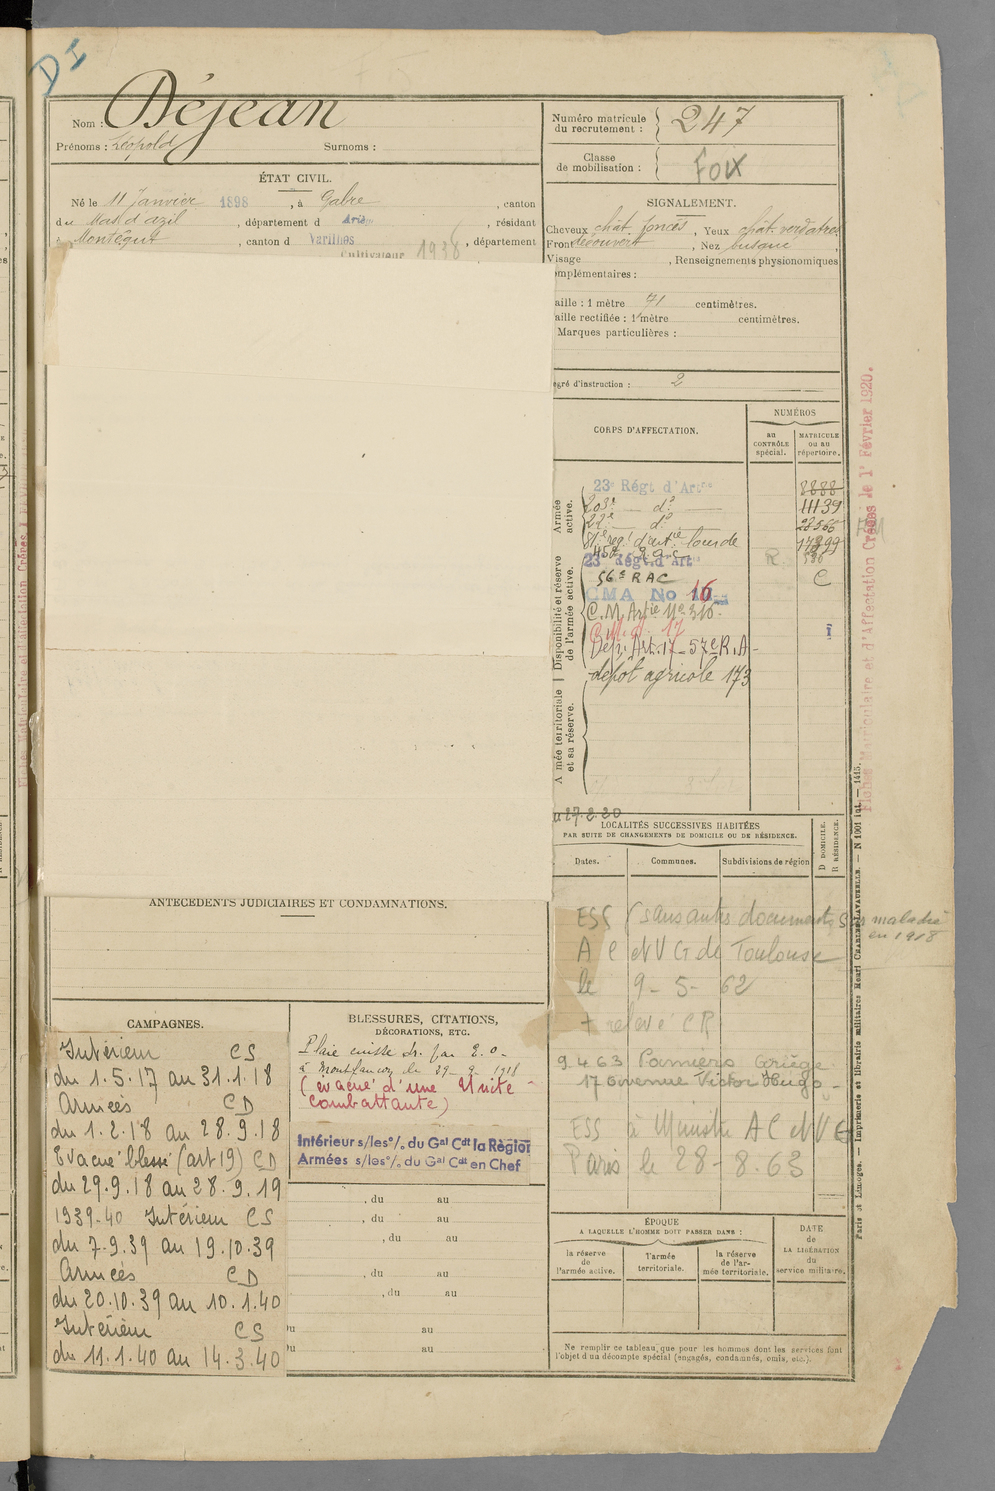 DI
Nom : Déjean
Prénoms : Léopold Surnoms :
Numéro matricule
du recrutement : 247
Classe
de mobilisation : Foix
ÉTAT CIVIL.
Né le 11 Janvier 1898, à Gabre, canton
du Mas d'azil, département d Ariège, résidant
à Montégut, canton d Varilhes, département
Cultivateur 1936
SIGNALEMENT.
Cheveux chât. foncés, Yeux chât. verdatres
Front découvert, Nez busqué,
Visage , Renseignements physionomiques
complémentaires :
aille : 1 mètre 71 centimètres.
aille rectifiée : 1 mètre centimètres.
Marques particulières :
egré d'instruction : 2
CORPS D'AFFECTATION.
NUMÉROS
au CONTRÔLE spécial.
MATRICULE ou au répertoire.
Armée active.
23e Régt d'Artie 8888
203e — do — 11139
22e — do 23566
81e reg. d'artie lourde 17399
23 Régt d'Artie R
Disponibilité et réserve de l'armée active.
56e RAC C
CMA No 16
C.M. Artie No 316.
Dep. Art. 17 - 57e R.A -
dépôt agricole 173
A mée territoriale et sa réserve.
u 27.2.20
LOCALITÉS SUCCESSIVES HABITÉES
PAR SUITE DE CHANGEMENTS DE DOMICILE OU DE RÉSIDENCE.
Dates. Communes. Subdivisions de région
D DOMICILE.
R RÉSIDENCE.
ESS (sans autres documents sur maladie
en 1918
A C et V G de Toulouse
le 9 - 5 - 62
+ relevé CR
9 463 Pamiers Ariège
17 avenue Victor Hugo -
ESS à Ministre A C et V G
Paris le 28 - 8. 63
ANTÉCÉDENTS JUDICIAIRES ET CONDAMNATIONS.
CAMPAGNES.
Intérieur CS
du 1.5.17 au 31.1.18
Armées CD
du 1.2.18 au 28.9.18
Evacué blessé (art 19) CD
du 29.9.18 au 28.9.19
1939-40 Intérieur CS
du 7.9.39 au 19.10.39
Armées CD
du 20.10.39 au 10.1.40
Intérieur CS
du 11.1.40 au 14.3.40
BLESSURES, CITATIONS,
DÉCORATIONS, ETC.
Plaie cuisse dr. par E.O-
à Montfaucon le 29-9-1918
(évacué d'une Unité
combattante)
Intérieur s/les°/. du Gal Cdt la Région
Armées s/les°/. du Gal Cdt en Chef
, du au
, du au
, du au
, du au
, du au
Du au
Du au
ÉPOQUE
A LAQUELLE L'HOMME DOIT PASSER DANS :
la réserve de l'armée active.
l'armée territoriale.
la réserve de l'armée territoriale.
DATE
de
LA LIBÉRATION
du
service militaire.
Ne remplir ce tableau que pour les hommes dont les services font
l'objet d'un décompte spécial (engagés, condamnés, omis, etc.).
Fiches Matriculaire et d'Affectation Créées le 1er Février 1920.
Paris et Limoges. — Imprimerie et librairie militaires Henri CHARLES-LAVAUZELLE. — N 1001 int. — 1415.